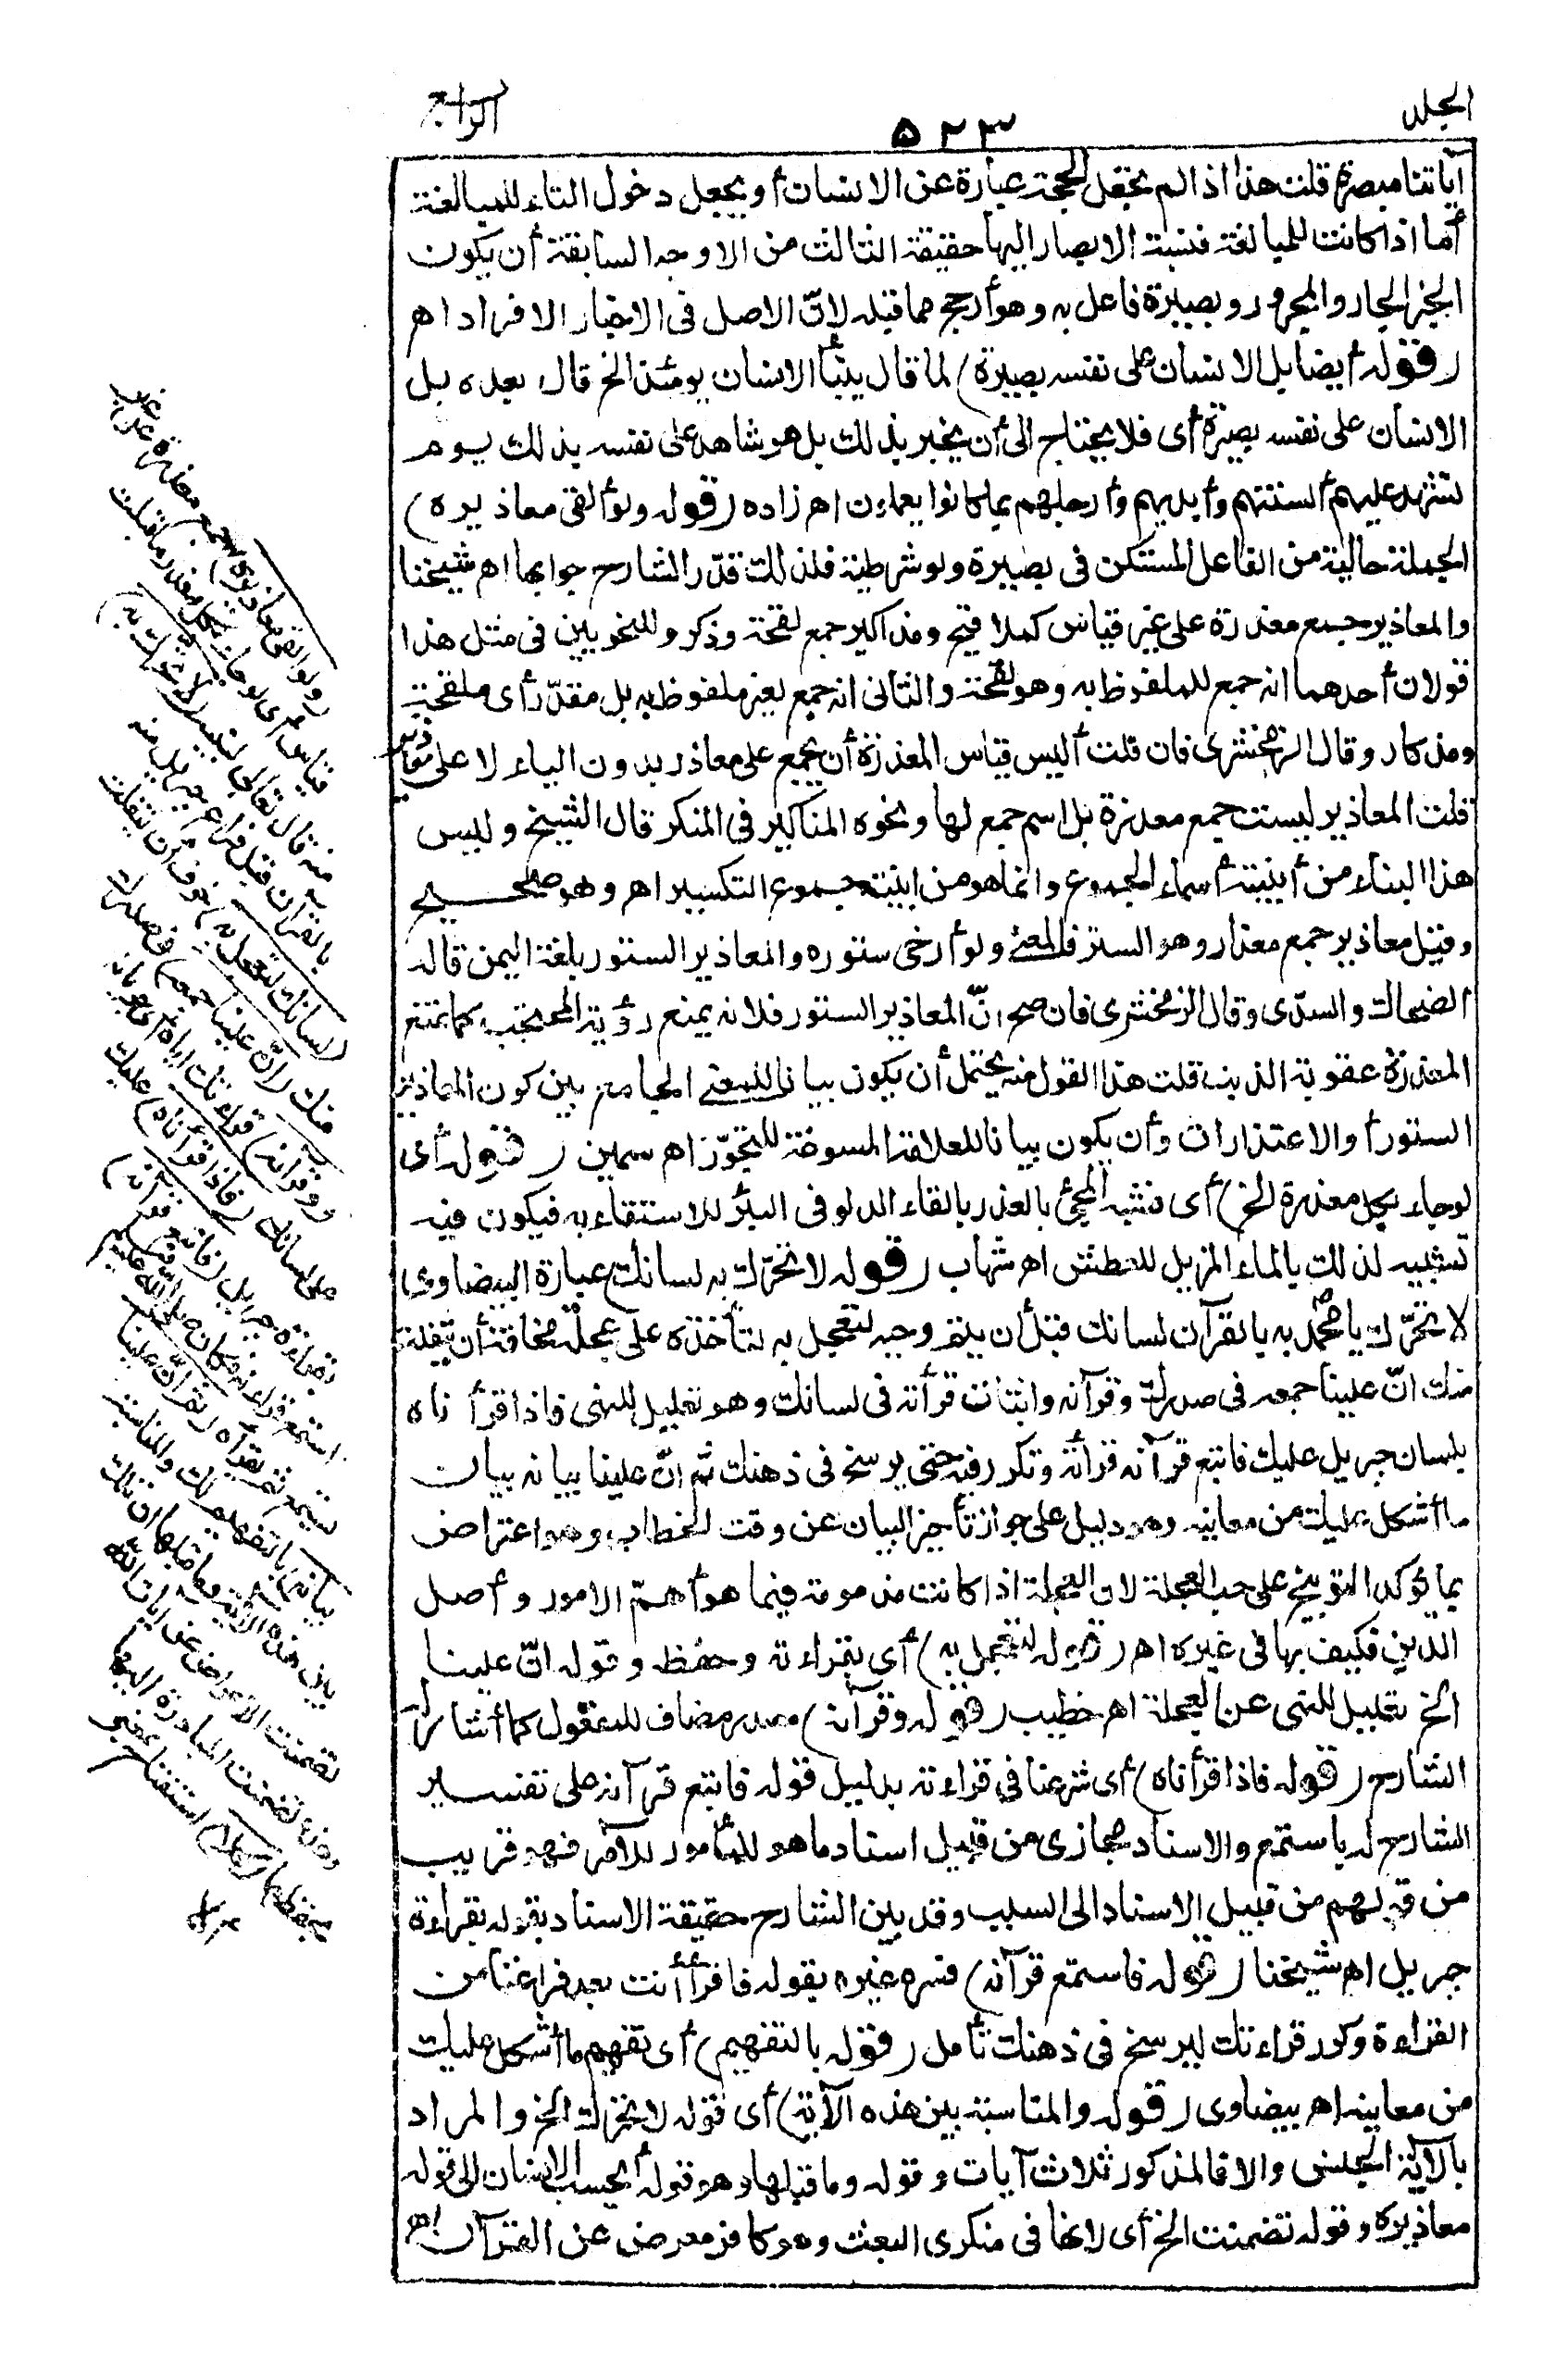 الجلد
٥٢٣
الرابع
آياتنا مبصرة قلت هذا اذا لم تجعل الحجة عبارة عن الانسان أو يجعل دخول التاء للمبالغة
أما اذا كانت للمبالغة فنسبة الابصار اليها حقيقة الثالث من الاوجه السابقة أن يكون
الخبر الجار والمجرور وبصيرة فاعل به وهو أرجح مما قبله لانّ الاصل فى الاخبار الافراد اه
(قوله أيضا بل الانسان على نفسه بصيرة) لما قال ينبأ الانسان يومئذ الخ قال بعده بل
الانسان على نفسه بصيرة أى فلا يحتاج الى أن يخبر بذلك بل هو شاهد على نفسه بذلك يوم
تشهد عليهم ألسنتهم وأيديهم وأرجلهم بما كانوا يعملون اه زاده (قوله ولو ألقى معاذيره)
الجملة حالية من الفاعل المستكن فى بصيرة ولو شرطية فلذلك قدّر الشارح جوابها اه شيخنا
والمعاذير جمع معذرة على غير قياس كملاقيح ومذاكير جمع لقحة وذكر وللنحويين فى مثل هذا
قولان أحدهما انه جمع للملفوظ به وهو لقحة والثانى انه جمع لغير ملفوظ به بل مقدّر أى ملقحة
ومذكار وقال الزمخشرى فان قلت أليس قياس المعذرة أن يجمع على معاذر بدون الياء لا على معاذير
قلت المعاذير ليست جمع معذرة بل اسم جمع لها ونحوه المناكير فى المنكر قال الشيخ وليس
هذا البناء من أبنية أسماء الجموع وانما هو من ابنية جموع التكسير اه وهو صحيح
وقيل معاذير جمع معذار وهو الستر فالمعنى ولو أرخى ستوره والمعاذير الستور بلغة اليمن قاله
الضحاك والسدّى وقال الزمخشرى فان صح انّ المعاذير الستور فلانه يمنع رؤية المحتجب كما تمنع
المعذرة عقوبة الذنب قلت هذا القول منه يحتمل أن يكون بيانا للمعنى الجامع بين كون المعاذير
الستور أو الاعتذارات وأن يكون بيانا للعلاقة المسوغة للتجوّز اه سمين (قوله أى
لو جاء بكل معذرة الخ) أى فشبه المجئ بالعذر بالقاء الدلو فى البئر للاستقاء به فيكون فيه
تشبيه لذلك بالماء المزيل للعطش اه شهاب (قوله لا تحرّك به لسانك) عبارة البيضاوى
لا تحرّك يا محمد به بالقرآن لسانك قبل أن يتم وحيه لتعجل به لتأخذه على عجلة مخافة أن يتفلت
منك انّ علينا جمعه فى صدرك وقرآنه واثبات قرأته فى لسانك وهو تعليل للنهى فاذا قرأناه
بلسان جبريل عليك فاتبع قرآنه قرأته وتكرر فيه حتى يرسخ فى ذهنك ثم انّ علينا بيانه بيان
ما أشكل عليك من معانيه وهو دليل على جواز تأخير البيان عن وقت الخطاب وهو اعتراض
بما يؤكد التوبيخ على حب العجلة لان العجلة اذا كانت مذمومة فيما هو أهمّ الامور وأصل
الدين فكيف بها فى غيره اه (قوله لتعجل به) أى بقراءته وحفظه وقوله انّ علينا
الخ تعليل للنهى عن العجلة اه خطيب (قوله وقرآنه) مصدر مضاف للمفعول كما أشار له
الشارح (قوله فاذا قرأناه) أى شرعنا فى قراءته بدليل قوله فاتبع قرآنه على تفسير
الشارح له باستمع والاسناد مجازى من قبيل اسناد ما هو للمأمور للآمر فهو قريب
من قولهم من قبيل الاسناد الى السبب وقد بين الشارح حقيقة الاسناد بقوله بقراءة
جبريل اه شيخنا (قوله فاستمع قرآنه) فسره غيره بقوله فاقرأ أنت بعد فراغنا من
القراءة وكرر قراءتك ليرسخ فى ذهنك تأمل (قوله بالتفهيم) أى تفهيم ما أشكل عليك
من معانيه اه بيضاوى (قوله والمناسبة بين هذه الآية) أى قوله لا تحرك الخ والمراد
بالآية الجنس والا فالمذكور ثلاث آيات وقوله وما قبلها وهو قوله أيحسب الانسان الى قوله
معاذيره وقوله تضمنت الخ أى لانها فى منكرى البعث وهو كافر معرض عن القرآن اه
(ولو القى معاذيره) جمع معذرة على غير
قياس أى لو جاء بكل معذرة ما قبلت
منه قال تعالى لنبيه (لا تحرك به)
بالقرآن قبل فراغ جبريل منه
(لسانك لتعجل به) خوف أن يتفلت
منك (انّ علينا جمعه) فى صدرك
(وقرآنه) قراءتك اياه أى جريانه
على لسانك (فاذا قرأناه) عليك
بقراءة جبريل (فاتبع قرآنه)
استمع قراءته فكان صلى الله عليه وسلم
يستمع ثم يقرأه (ثم انّ علينا
بيانه) بالتفهيم لك والمناسبة
بين هذه الآية وما قبلها ان تلك
تضمنت الاعراض عن آيات الله
وهذه تضمنت المبادرة اليها
بحفظها (كلا) استفتاح بمعنى